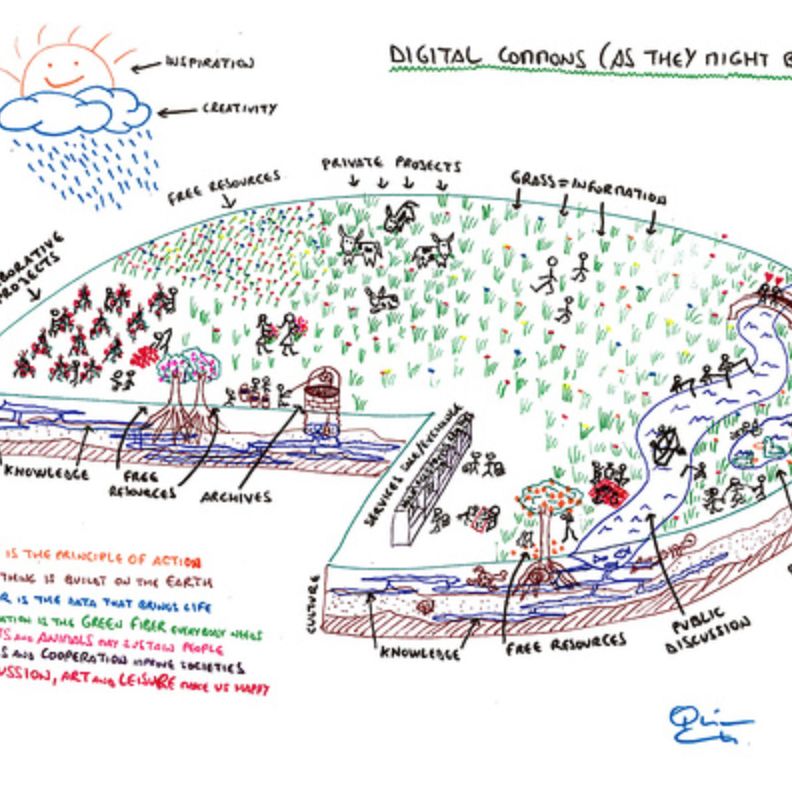 DIGITAL COMMONS (AS THEY MIGHT B
INSPIRATION
CREATIVITY
FREE RESOURCES
PRIVATE PROJECTS
GRASS = INFORMATION
BORATIVE
PROJECTS
KNOWLEDGE
FREE
RESOURCES
ARCHIVES
SERVICES
CULTURE
KNOWLEDGE
FREE RESOURCES
PUBLIC
DISCUSSION
IS THE PRINCIPLE OF ACTION
THING IS BUILT ON THE EARTH
R IS THE DATA THAT BRINGS LIFE
ATION IS THE GREEN FIBER EVERYBODY NEEDS
TS AND ANIMALS MAY SUSTAIN PEOPLE
S AND COOPERATION SOCIETIES
USSION, ART AND LEISURE MAKE US HAPPY